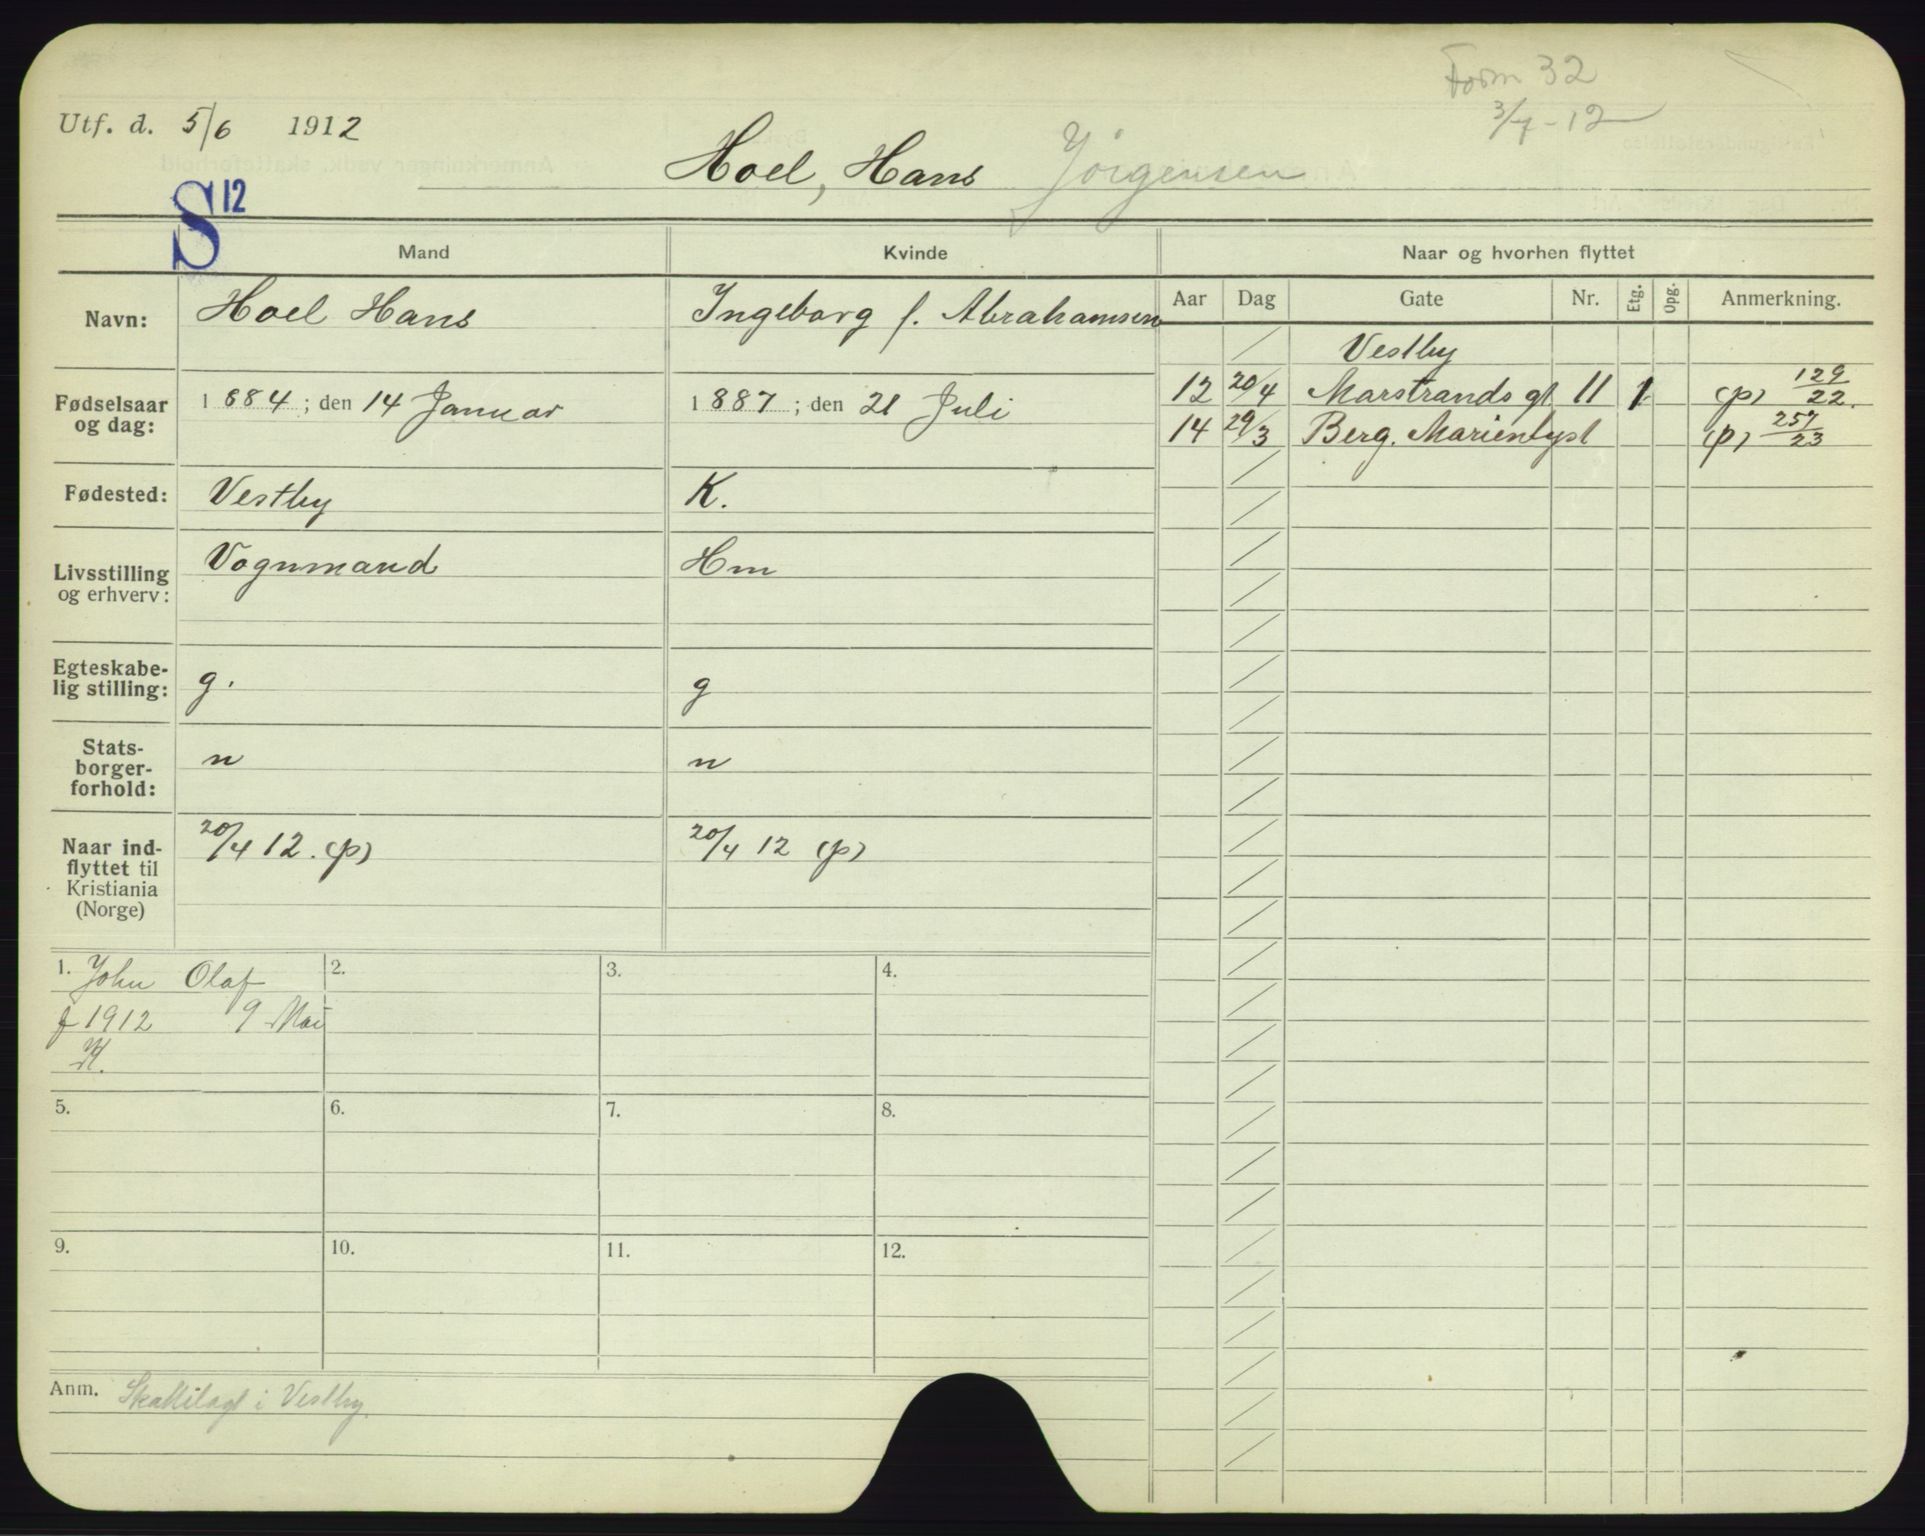 Form 32
3/7 - 12
Utf. d. 5/6 1912
Hoel, Hans Jörgensen
S 12
Mand Kvinde Naar og hvorhen flyttet
Navn: Hoel Hans Ingeborg f. Abrahamsen
Aar Dag Gate Nr. Etg. Opg. Anmerkning.
Vestby
12 20/4 Marstrands gt 11 1 (p) 129/22.
14 29/3 Berg. Marienlyst (p) 257/23
Fødselsaar og dag: 1884; den 14 Januar 1887; den 21 Juli
Fødested: Vestby K.
Livsstilling og erhverv: Vognmand Hm
Egteskabe-
lig stilling: g. g
Stats-
borger-
forhold: n n
Naar ind-
flyttet til
Kristiania
(Norge) 20/4 12. (p) 20/4 12 (p)
1. John Olaf 2. 3. 4.
f 1912 9 Mai
K.
5. 6. 7. 8.
9. 10. 11. 12.
Anm. Skattilagt i Vestby.